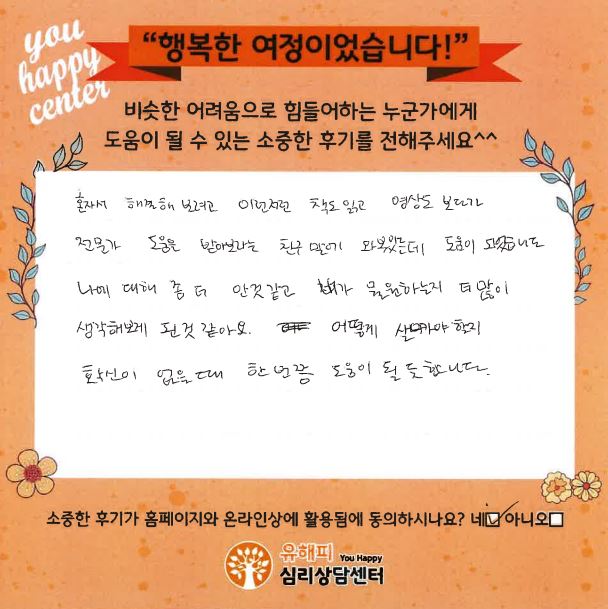 you
happy
center
“행복한 여정이었습니다!”
비슷한 어려움으로 힘들어하는 누군가에게
도움이 될 수 있는 소중한 후기를 전해주세요^^
혼자서 해결해 보려고 이런저런 책도 읽고 영상도 보다가
전문가 도움을 받아보라는 친구 말에 와봤는데 도움이 되었습니다
나에 대해 좀 더 안것같고 내가 뭘 원하는지 더 많이
생각해보게 된것 같아요. 어떻게 살아가야 할지
확신이 없을 때 한 번쯤 도움이 될 듯 합니다.
소중한 후기가 홈페이지와 온라인상에 활용됨에 동의하시나요? 네☑ 아니오☐
유해피 You Happy
심리상담센터